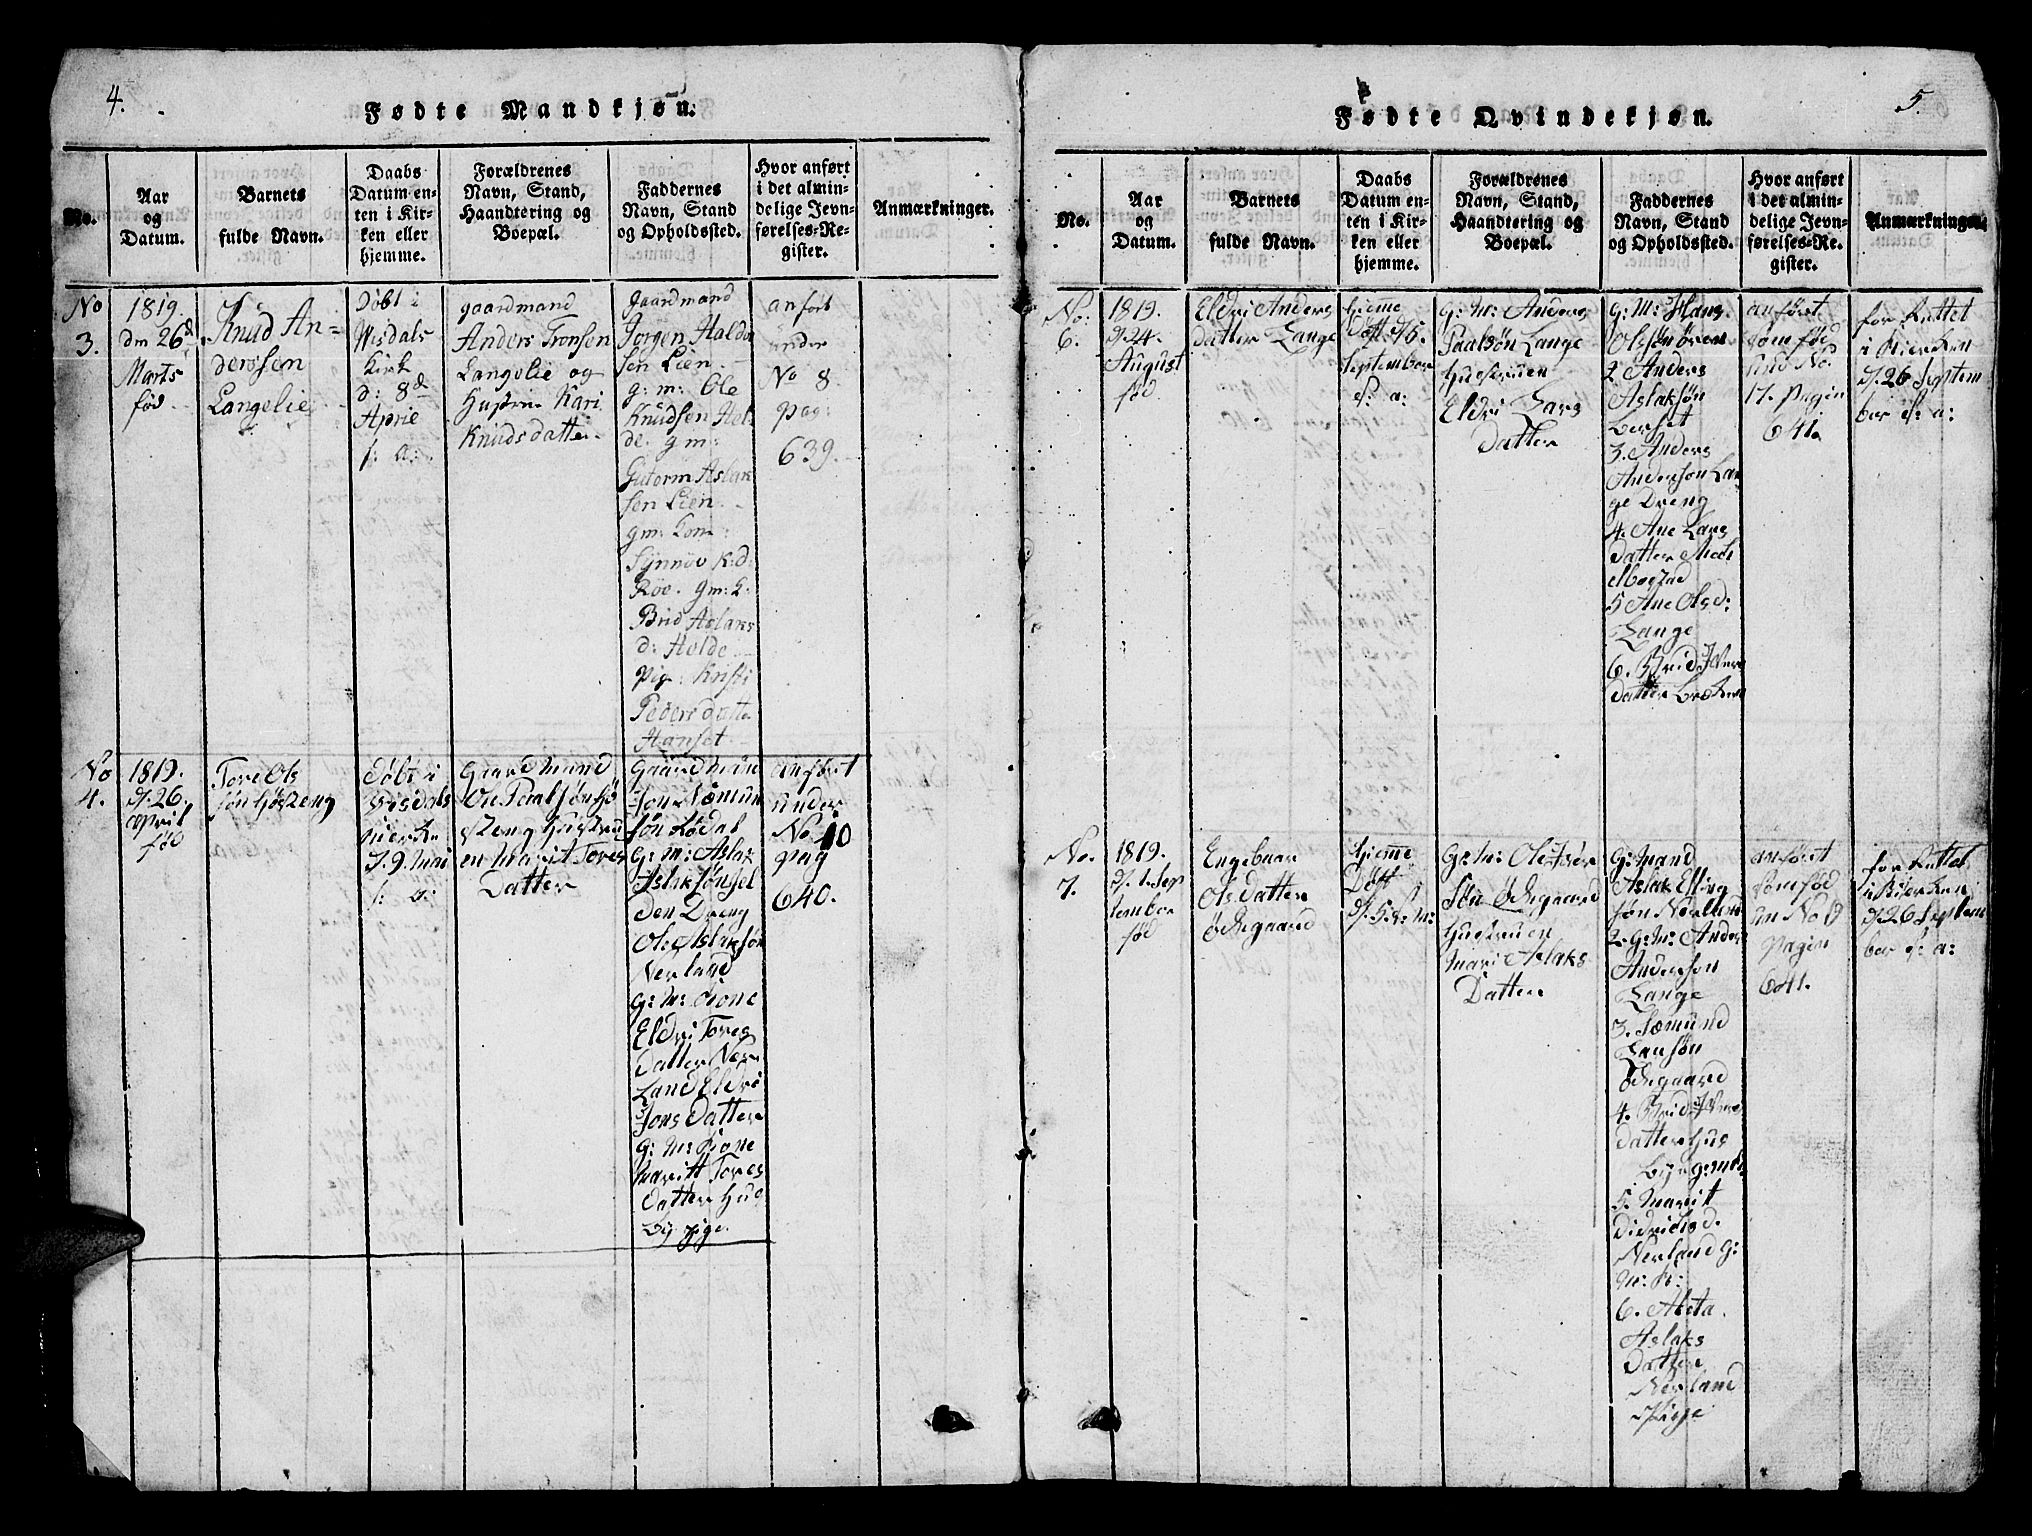 4.
Fødte Mandkjøn.
No.
Aar
og
Datum.
Barnets
fulde Navn.
Daabs
Datum en-
ten i Kir-
ken eller
hjemme.
Forældrenes
Navn, Stand,
Haandtering og
Boepæl.
Faddernes
Navn, Stand
og Opholdssted.
Hvor anført
i det almin-
delige Jevn-
førelses-Re-
gister.
Anmærkninger.
No
3.
1819.
den 26d
Marts
fød
Knud An-
derssen
Langelie
Døbt i
Wisdals
Kirk
d: 8de
Aprie
s: a:
gaardmand
Anders Tronsen
Langelie og
Hustru Kari
Knudsdatter
gaardmand
Jørgen Haldo
sen Lien
g: m: Ole
Knudsen Hol
de. gm:
Gutorm Aslak
sen Lien
gm: Kom:
Synnøv K:d
Röv. gm: K:
Brid Aslaks
d: Holde
Pig: Kristi
Peders datte
Hanset
anført
under
No 8
pag:
639.
No
4.
1819.
d. 26
april
fød
Tore Ols
søn
Døbt i
Wisdals
Kierke
d 9 Mai
s: a:
Gaardmand
Ole Paalsøn
Hustru
en Marit Tores
Datter
Gaardmand
Jon Sæmun
søn Rødal
G: M: Aslak
Aslaksøn
den Dreng
Ole Aslaksøn
Nerland
G: M: Kone
Eldri Tores
Datter Ner
Land Eldri
Jons Datter
G: M: Kone
Maritt Tores
Datter Hus
by pige
anført
under
No. 10
pag
640.
5.
Fødte Qvindekjøn.
No.
Aar
og
Datum.
Barnets
fulde Navn.
Daabs
Datum en-
ten i Kir-
ken eller
hjemme.
Forældrenes
Navn, Stand,
Haandtering og
Boepæl.
Faddernes
Navn, Stand
og Opholdssted.
Hvor anført
i det almin-
delige Jevn-
førelses-Re-
gister.
Anmærkninger.
No:
6.
1819.
d. 24
August
fød
Eldri Anders
datter Lange
hjeme
Døft d. 5.
September
s: a:
G: M: Anders
Paalsøn Lange
Hustruen
Eldri Lars
Datter
G: M: Hans
Olssønøren
2 Anders
Aslaksøn
Berset
3. Anders
Andersøn Lan
ge Dreng
4. Ane Lars
Datter
5 Ane Olsd:
Lange
6. Brid Iver
datter
anført
som fød
und No.
17. Pagin
641.
for Rettet
i Kierken
d. 26 Septem
ber s: a:
No.
7.
1819.
d. 1 Sep
tember
fød
Engebaar
Ols Datter
Ødegaard
hjeme
Døft
d. 5. s: M:
G: M: Ole
Søn Ødegaard
Hustruen
Mari Aslaks
Datter
G: Mand
Aslak Elling
søn Nerland
2. G: M: Anders
Andersøn
Lange
3. Sæmund
Lansøn
Ødegaard
4. Brid Iver
Datter Hus
by
5. Marit
Didriks d.
Nerland G:
M: K:
6.
Aslaks
Datter
Nerland
Pige
anført
som fød
un No
Pagin
641.
for Rettet
i Kierken
d. 26 Septem
ber s: a: